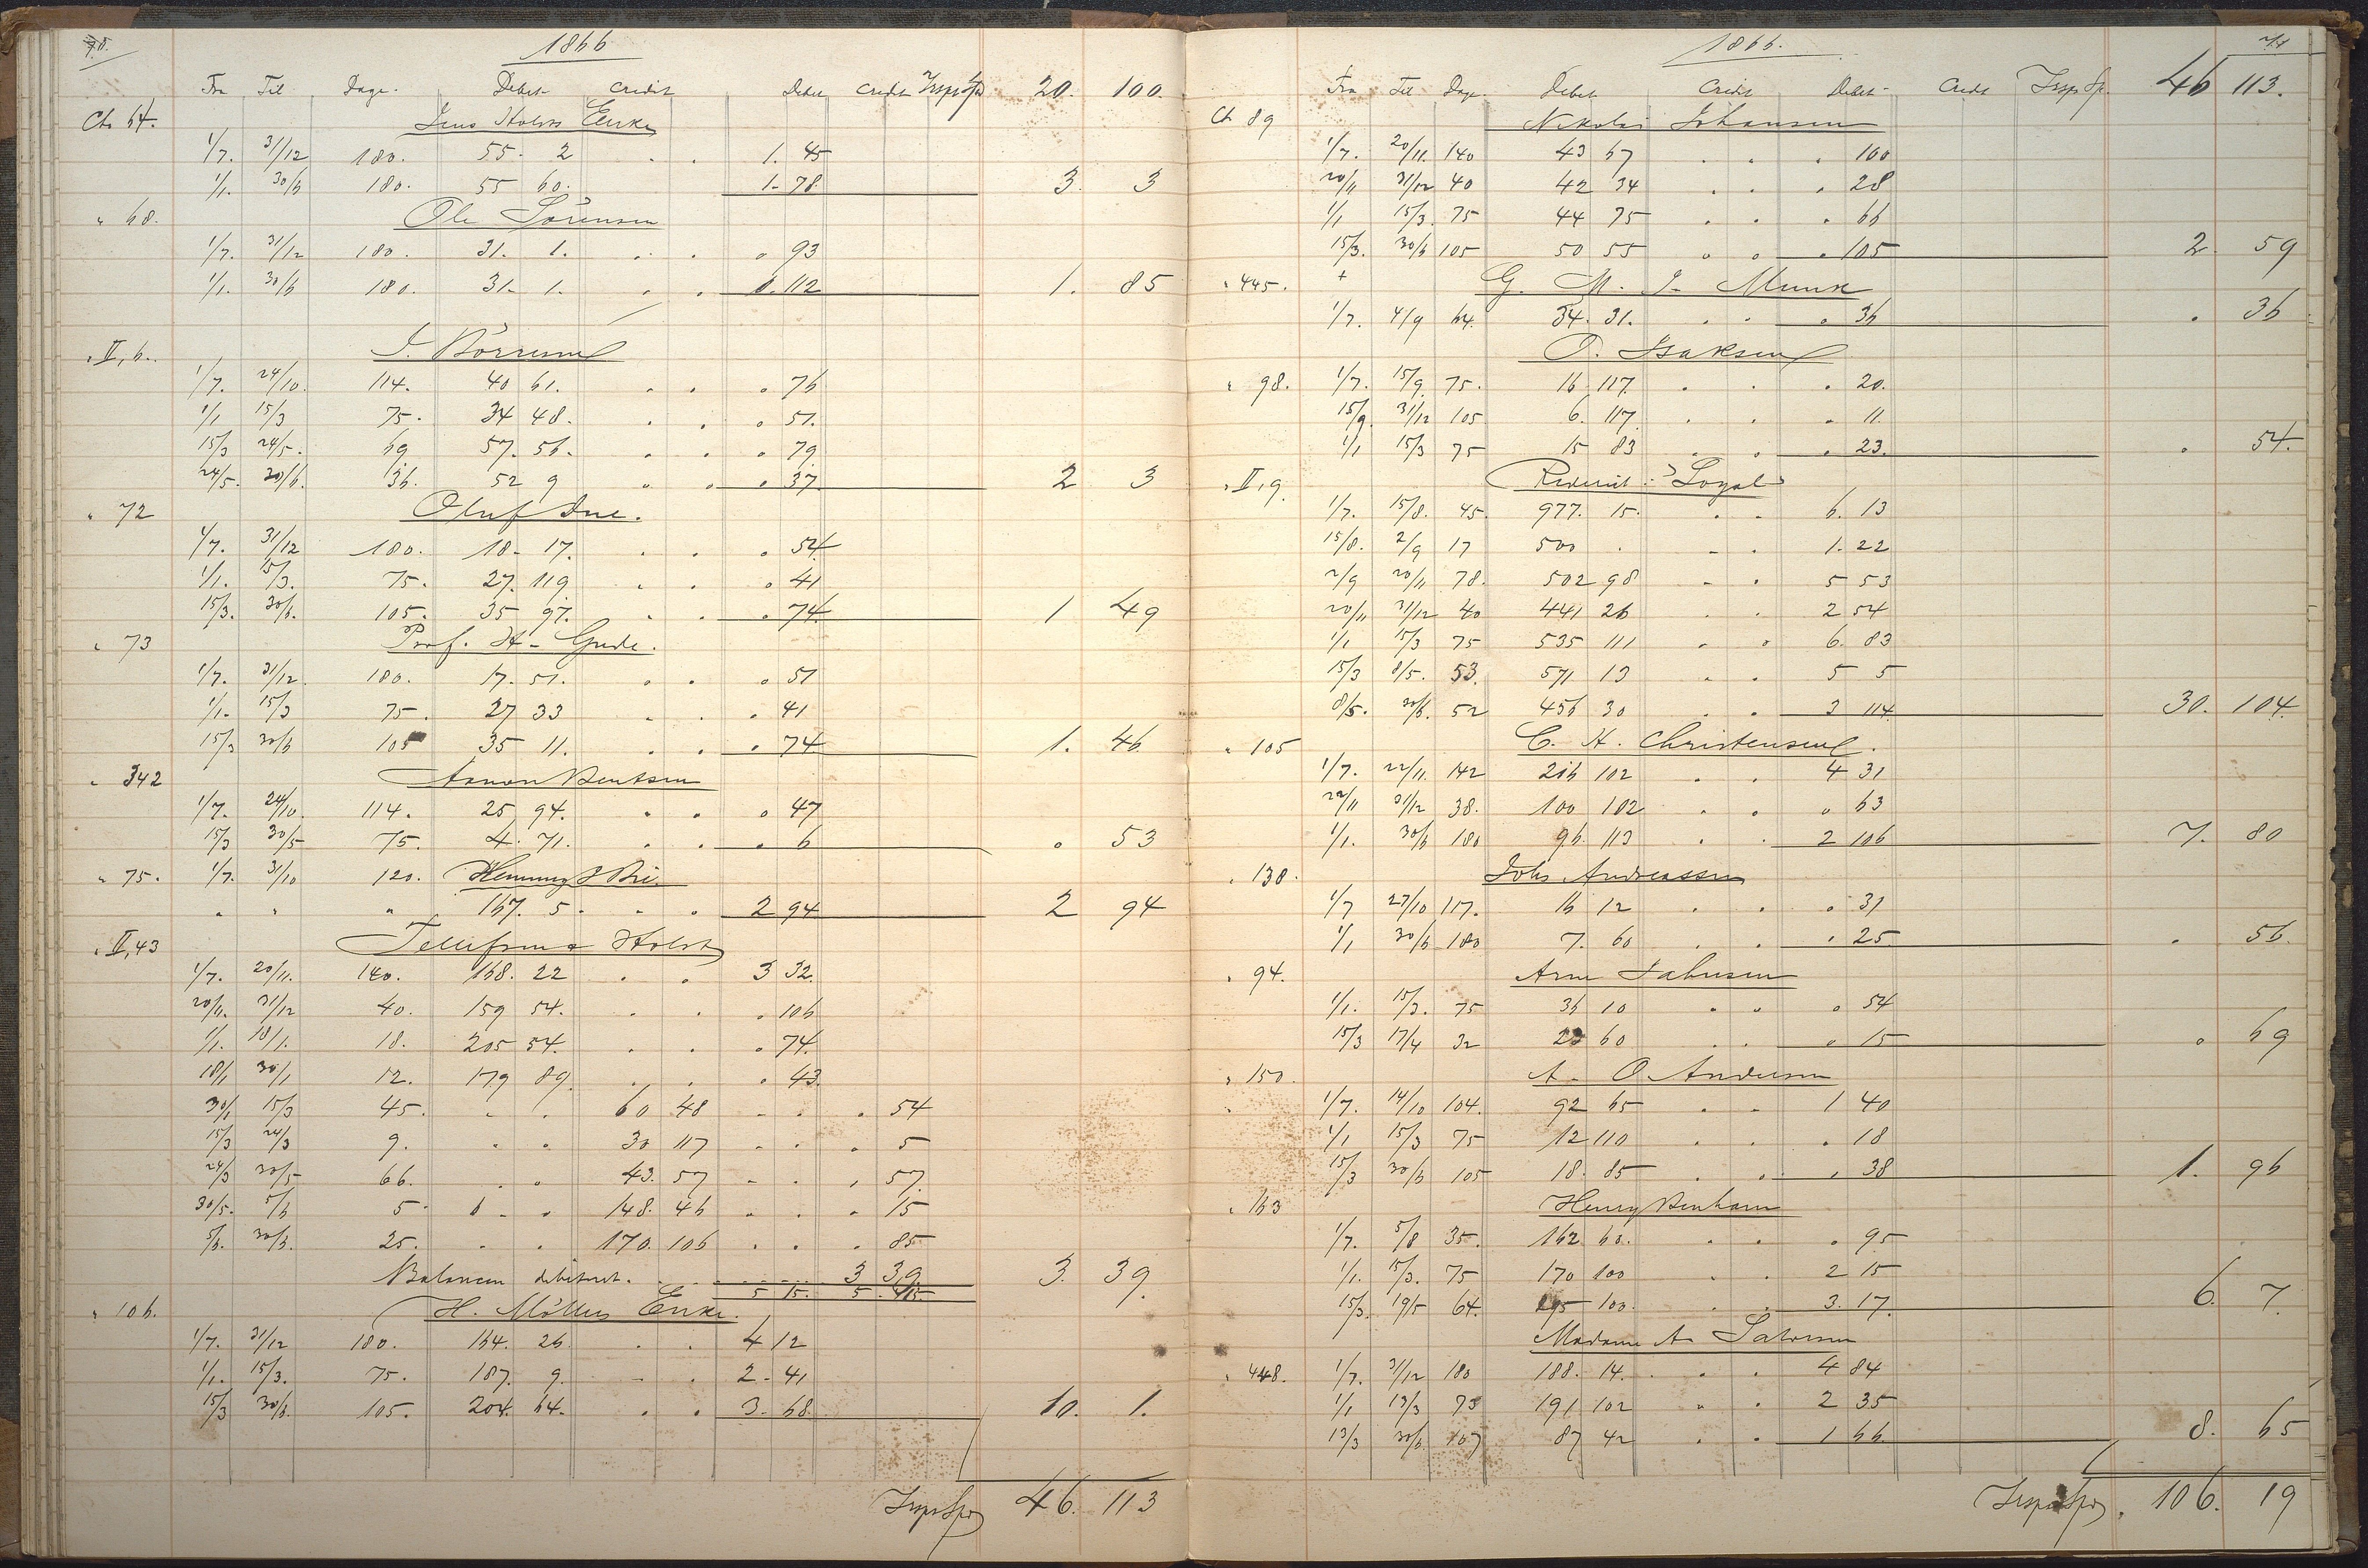 1866
Fra Til Dage. Debet Credit Debet Credit Trspt Spd 20. 100.
Cto 64. Jens Holsts Enke
1/7. 31/12 180. 55. 2 . . 1. 45
1/1. 30/6 180. 55 60. 1. 78 3. 3
" 68. Ole Sörensen
1/7. 31/12 180. 31. 1. . . " 93
1/1. 30/6 180. 31. 1. . . 0. 112 1. 85
" II, 6. J. Börresen
1/7. 24/10. 114. 40 61. . . " 76
1/1 15/3 75. 34 48. . . " 51.
15/3 24/5. 69 57. 56. . . " 79
24/5. 30/6. 36. 52 9 " " " 37. 2 3
" 72 Oluf Due.
1/7. 31/12 180. 18. 17. . . " 54.
1/1. 15/3. 75. 27. 119 . . " 41
15/3. 30/6. 105. 35 97. . . " 74. 1 49
" 73 Prof. H. Gude.
1/7. 31/12. 180. 17. 51. . . " 51
1/1. 15/3 75. 27 33 . . " 41
15/3 30/6 105 35 11. . . " 74 1. 46
" 342 Bentsen
1/7. 24/10. 114. 25 94. . . " 47
15/3 30/5 75. 4. 71. . . " 6 " 53
" 75. 1/7. 31/10 120. Henning
" " " 167. 5. . . 2 94 2 94
" II, 43 Tellefsen & Holst
1/7. 20/11. 140. 168. 22 . . 3 32.
20/11. 31/12 40. 159 54. . . . 106
1/1. 18/1. 18. 205 54. . . " 74.
18/1 30/1 12. 179 89. . . " 43.
30/1 15/3 45. . . 60 48 . . . 54
15/3 24/3 9. . . 30 117 . . . 5
24/3 30/5 66. . . 43. 57 . . , 57.
30/5. 5/6 5. . . 148. 46 . . . 15
5/6. 30/6. 25. . . 170. 106 . . . 85
Balancen debiteret. 3 39. 3. 39.
5 15. 5. 15.
" 106. H. Möllers Enke.
1/7. 31/12 180. 164. 26 . . 4 12
1/1. 15/3. 75. 187. 9. . . 2. 41
15/3 30/6. 105. 204. 64. . . 3. 68 10. 1.
Trspt Spd 46. 113
1866.
Fra Til Dage. Debet Credit Debet Credt Trspt Sp. 46 113.
Ct 89 Nikolai Johansen
1/7. 20/11. 140 43 67 . . . 100
20/11 31/12 40 42 34 . . . 28
1/1 15/3. 75 44 75 . . " 66
15/3. 30/6 105 50 55 " " " 105 2. 59
" 445. + G. M. J. Munk
1/7. 4/9 64. 34. 31. . . " 36 . 36
O. Isaksen
" 98. 1/7. 15/9. 75. 16 117. . . . 20.
15/9. 31/12 105 6. 117. . . " 11.
1/1 15/3 75 15 83 . . . 23. . 54.
" II, 9. Rederiet : Loyal
1/7. 15/8. 45. 977. 15. . . 6. 13
15/8. 2/9 17 500 . . . 1. 22
2/9 20/11 78. 502 98 . . 5 53
20/11 31/12 40 441 26 . . 2 54
1/1 15/3 75 535 111 . . 6. 83
15/3 8/5. 53. 571 13 . . 5 5
8/5. 30/6. 52 456 30 . . 3 114. 30. 104.
" 105 C. H. Christensen.
1/7. 22/11. 142 216 102 . . 4 31
22/11 31/12 38. 100 102 . . " 63
1/1. 30/6 180 96. 113 . . 2 106 7. 80
" 138. Johs Andreassen
1/7 27/10 117. 16 12 . . " 31
1/1 30/6 180 7. 60 . . . 25 . 56.
" 94. Arne Jahnsen
1/1. 15/3. 75 36 10 . . " 54
15/3 17/4 32 23 60 . . " 15 " 69
" 150. A. O. Andersen
1/7. 14/10 104. 92 65 . . 1 40
1/1 15/3 75 12 110 . . . 18
15/3 30/6 105 18. 85 . . , 38 1. 96
" 163 Henry Benham
1/7. 5/8 35. 162 60. . . " 95
1/1. 15/3. 75 170 100 . . 2 15
15/3. 19/5 64. 100. . . 3. 17. 6. 7.
Madame A.
" 448. 1/7. 31/12 180 188. 14. . . 4 84
1/1 13/3 73 191 102 " . 2 35
13/3 30/6 107 87 42 . . 1 66. 8. 65
Trspt Spd, 106. 19